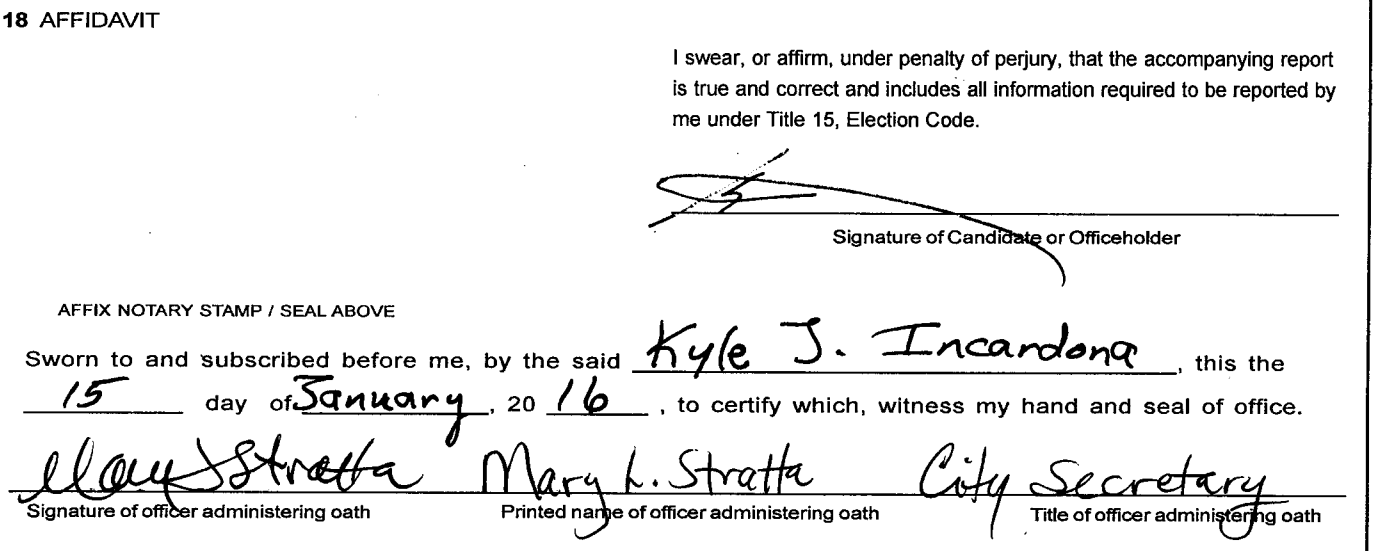 18 AFFIDAVIT
I swear, or affirm, under penalty of perjury, that the accompanying report
is true and correct and includes all information required to be reported by
me under Title 15, Election Code.
Signature of Candidate or Officeholder
AFFIX NOTARY STAMP / SEAL ABOVE
Sworn to and subscribed before me, by the said Kyle J. Incardona, this the
15 day of January, 20 16, to certify which, witness my hand and seal of office.
Mary L Stratta Mary L. Stratta City Secretary
Signature of officer administering oath Printed name of officer administering oath Title of officer administering oath